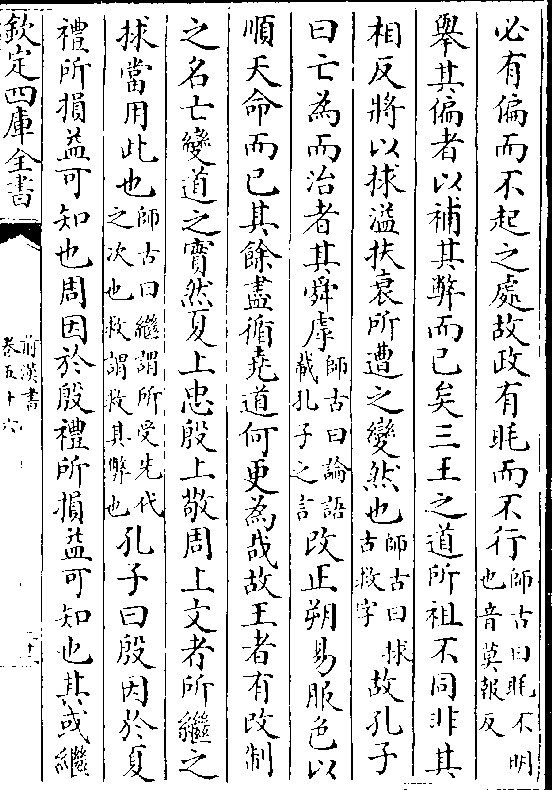 必有偏而不起之處故政有眊而不行師古曰眊不明也音莫報反
舉其偏者以補其弊而已矣三王之道所祖不同非其
相反將以捄溢扶衰所遭之變然也師古曰捄古救字故孔子
曰亡為而治者其舜虖師古曰論語載孔子之言改正朔易服色以
順天命而已其餘盡循堯道何更為哉故王者有改制
之名亡變道之實然夏上忠殷上敬周上文者所繼之
捄當用此也師古曰繼謂所受先代之次也救謂救其弊也孔子曰殷因於夏
禮所損益可知也周因於殷禮所損益可知也其或繼
欽定四庫全書
前漢書
卷五十六